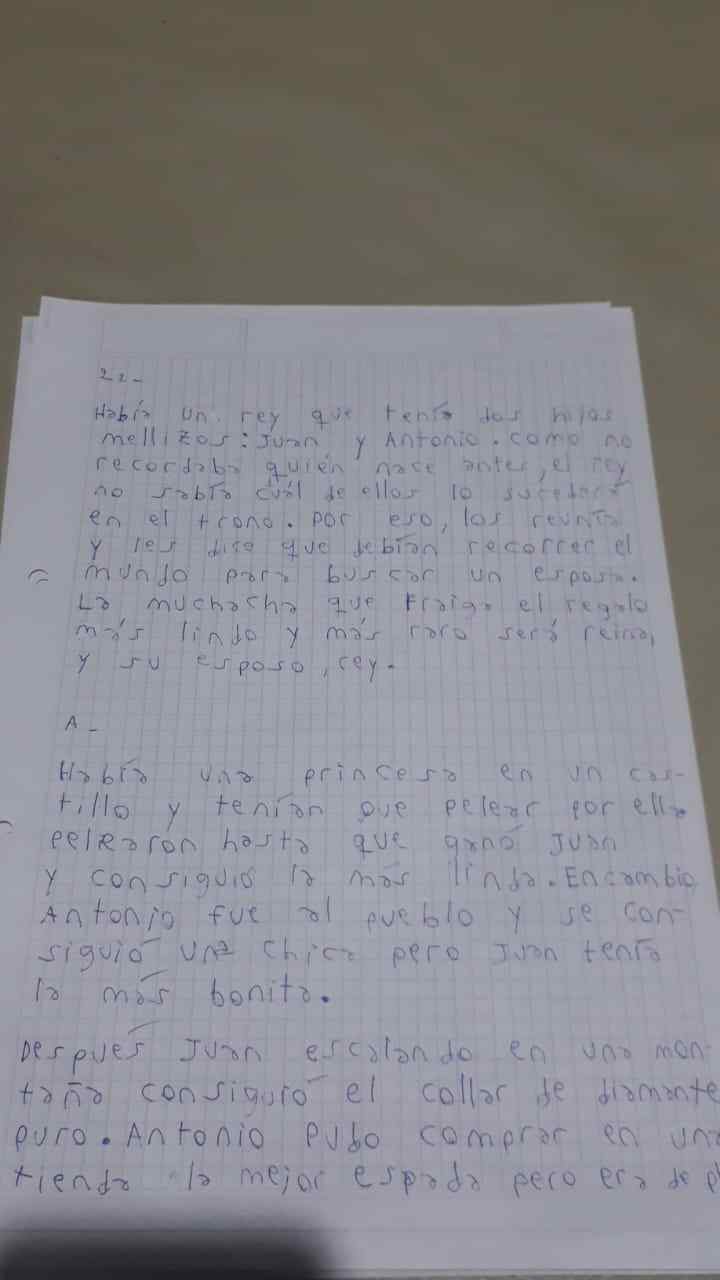 22-
Había un rey que tenía dos hijos
mellizos: Juan y Antonio. como no
recordaba quién nace antes, el rey
no sabía cuál de ellos lo sucederá
en el trono. por eso, los reunía
y les dice que debían recorrer el
mundo para buscar un esposa.
La muchacha que traiga el regalo
más lindo y más raro será reina,
y su esposo, rey.
A-
Había una princesa en un cas-
tillo y tenían que pelear por ella
pelearon hasta que ganó Juan
y consiguió la más linda. Encambio
Antonio fue al pueblo y se con-
siguió una chica pero Juan tenía
la más bonita.
Después Juan escalando en una mon-
taña consiguió el collar de diamante
puro. Antonio pudo comprar en una
tienda la mejor espada pero era de